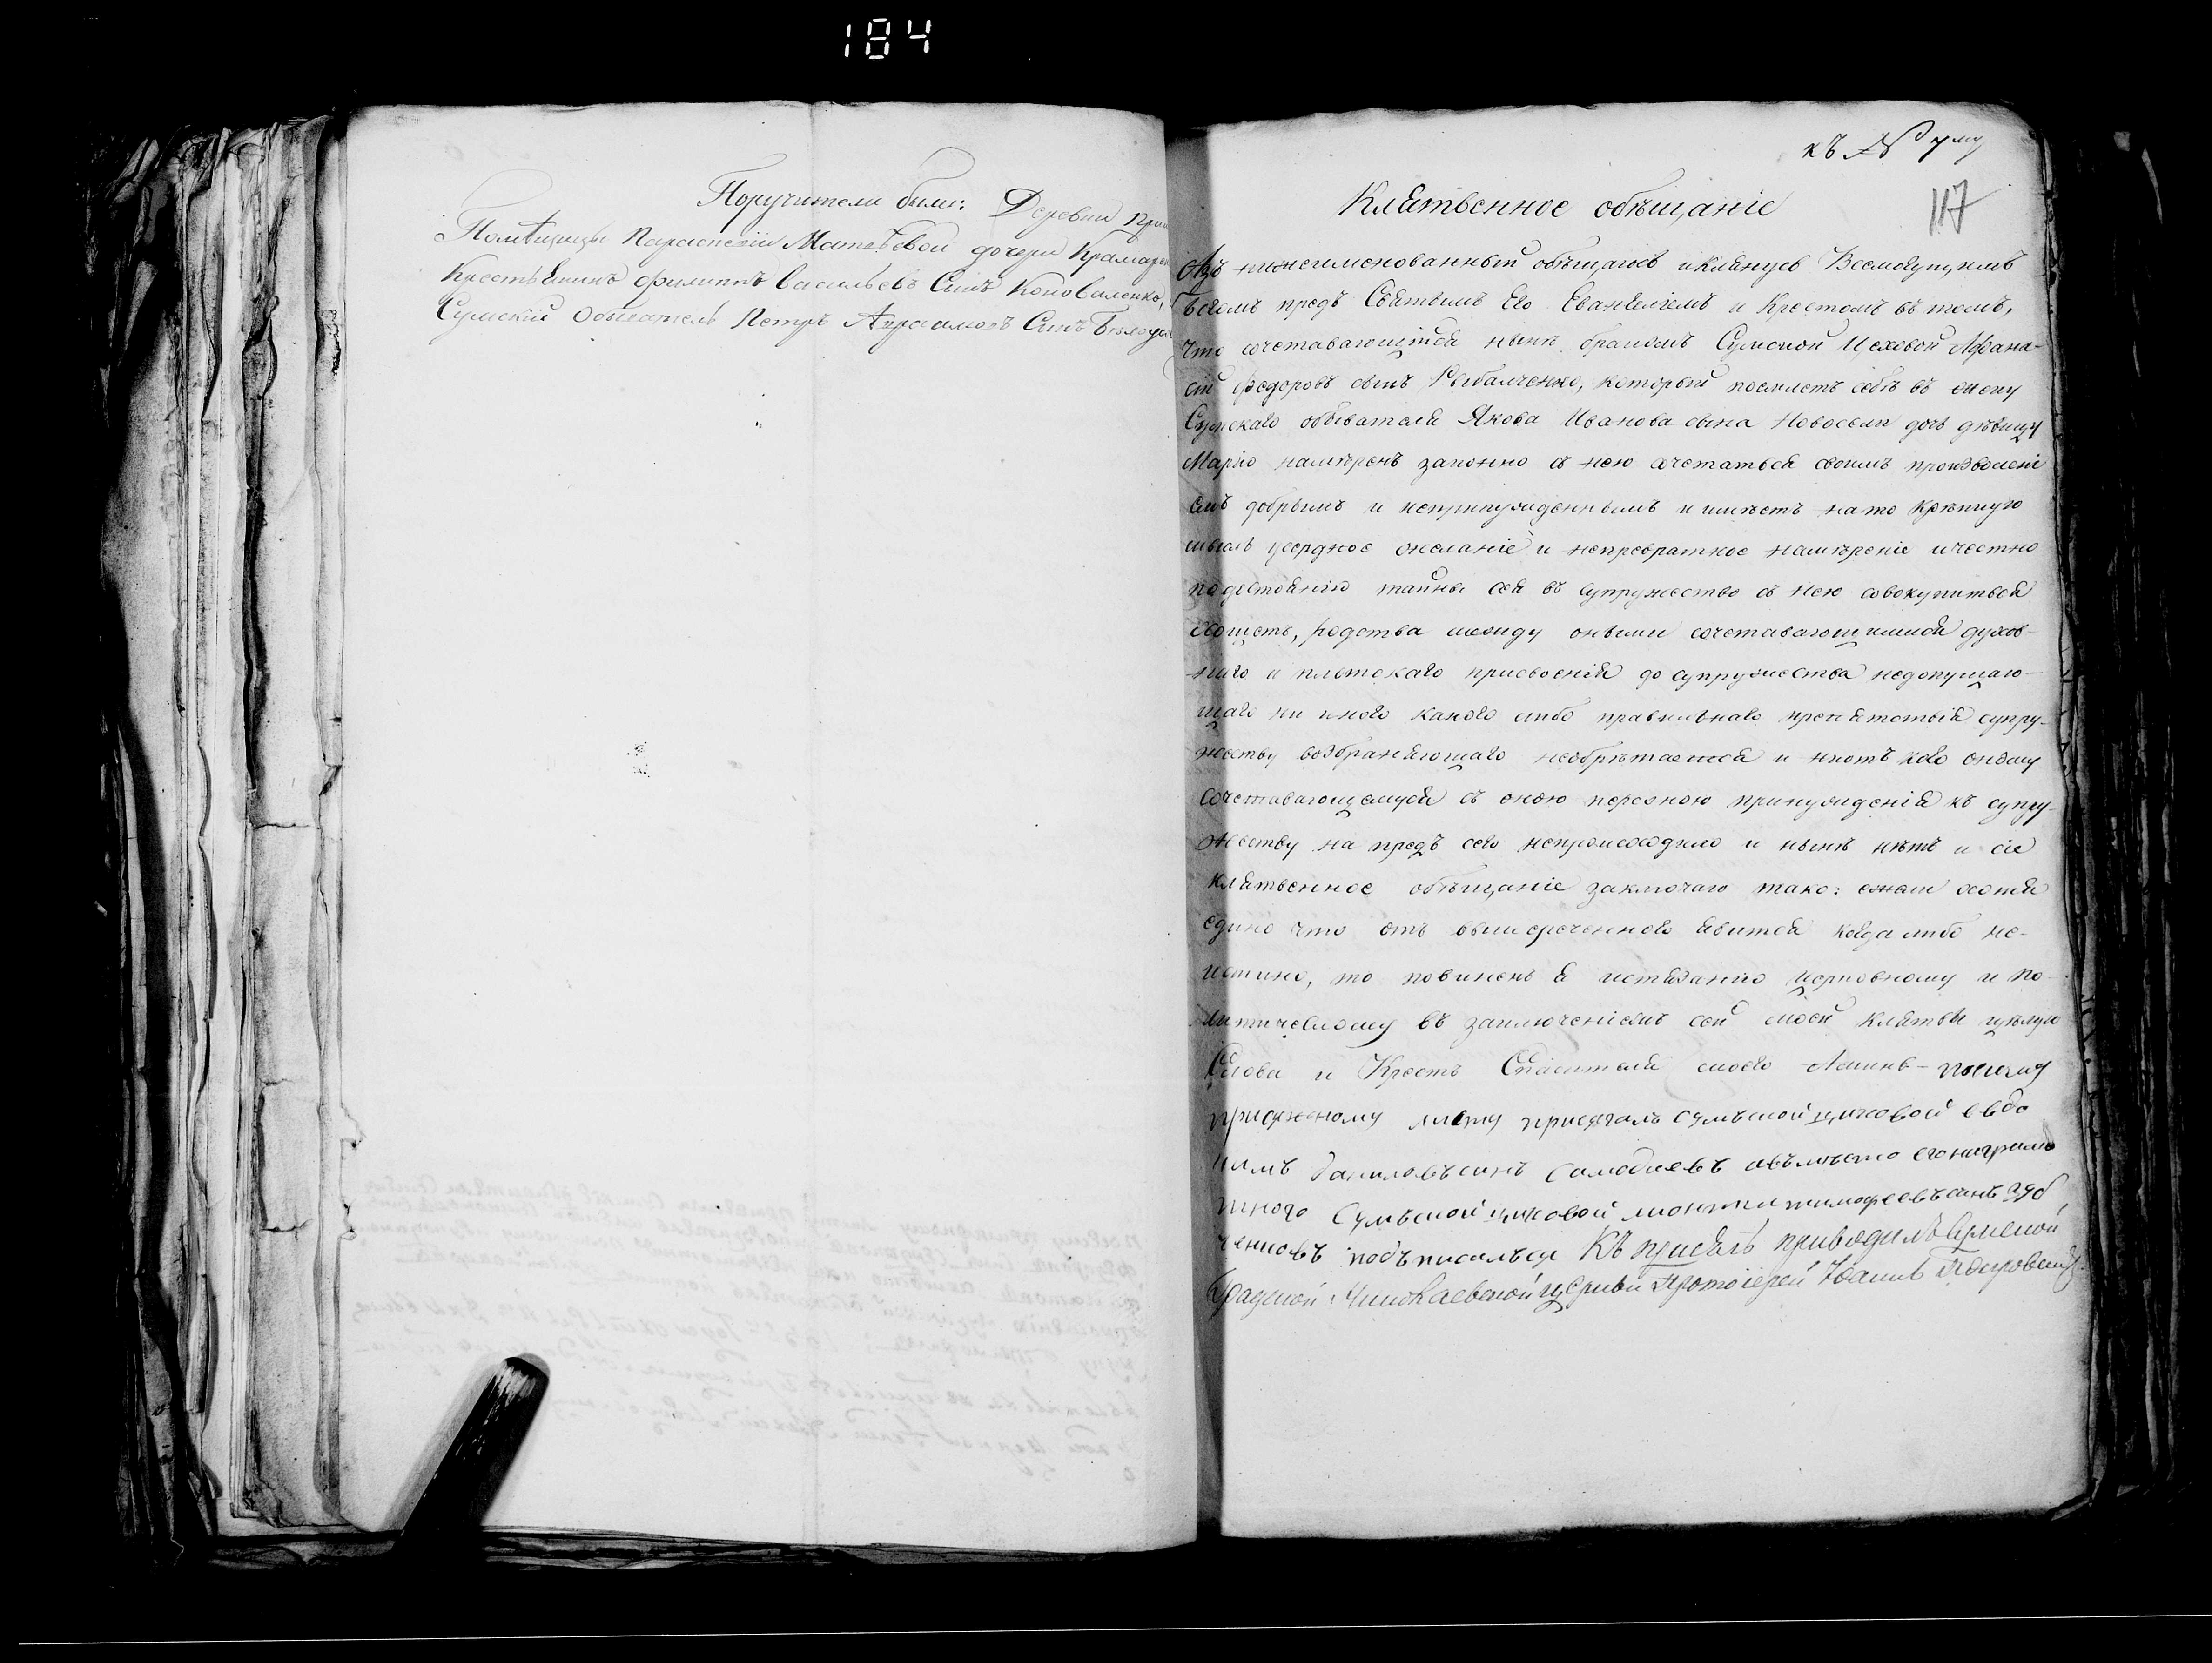 184
Поручители были: Деревни При
Помѣщицы Параскевіи Матвѣевой дочери Крамаре
Крестьянинъ Филиппъ Васильевъ Сынъ Коноваленко,
Сумскій Обыватель Петръ Авраамовъ Сынъ
къ № 7му
117
Клятвенное обѣщаніе
Азъ нижеименованный обѣщаюсь и клянусь Всемогущимъ
Богомъ предъ Святымъ Его Евангеліемъ и Крестомъ въ томъ,
Что сочетавающійся нынѣ бракомъ Сумской Цеховой Афана-
сій Федоровъ сынъ Рыбалченко, который поемлетъ себѣ въ жену
Сумскаго обывателя Якова Иванова сына дочь дѣвицу
Марію намѣренъ законно съ нею сочетаться своимъ произволені
емъ добрымъ и непринужденнымъ и имѣетъ на то крѣпкую
мысль усердное желаніе и непревратное намѣреніе и честно
по достоянію тайны сея въ супружество съ нею совокупиться
хощетъ, родства между оными сочетавающимися духов-
наго и плотскаго присвоенія до супружества недопущаю-
щаго ни иного какого либо правильнаго препятствія супру-
жеству возбраняющаго необрѣтается и ни отъ кого оному
сочетавающемуся съ оною персоною принужденія къ супру-
жеству на предъ сего непроисходило и нынѣ нѣтъ и сіе
клятвенное обѣщаніе заключаю тако: ежели хотя
едино что отъ вышереченнаго явится когда либо не-
истино, то повиненъ я истязанію церковному и по-
литическому въ заключеніемъ сей моей клятвы цѣлую
Слова и Крестъ Спасителя моего Аминь – посему
присяжному листу присягалъ сумъской цеховой евдо
кимъ даниловъ синъ авъмѣсто его неграмо
тного Сумъской цеховой тимофеевъ синъ
подъписалъся Къ присягѣ приводилъ Сумской
Градской Николаевской церкви Протоіерей Іоаннъ